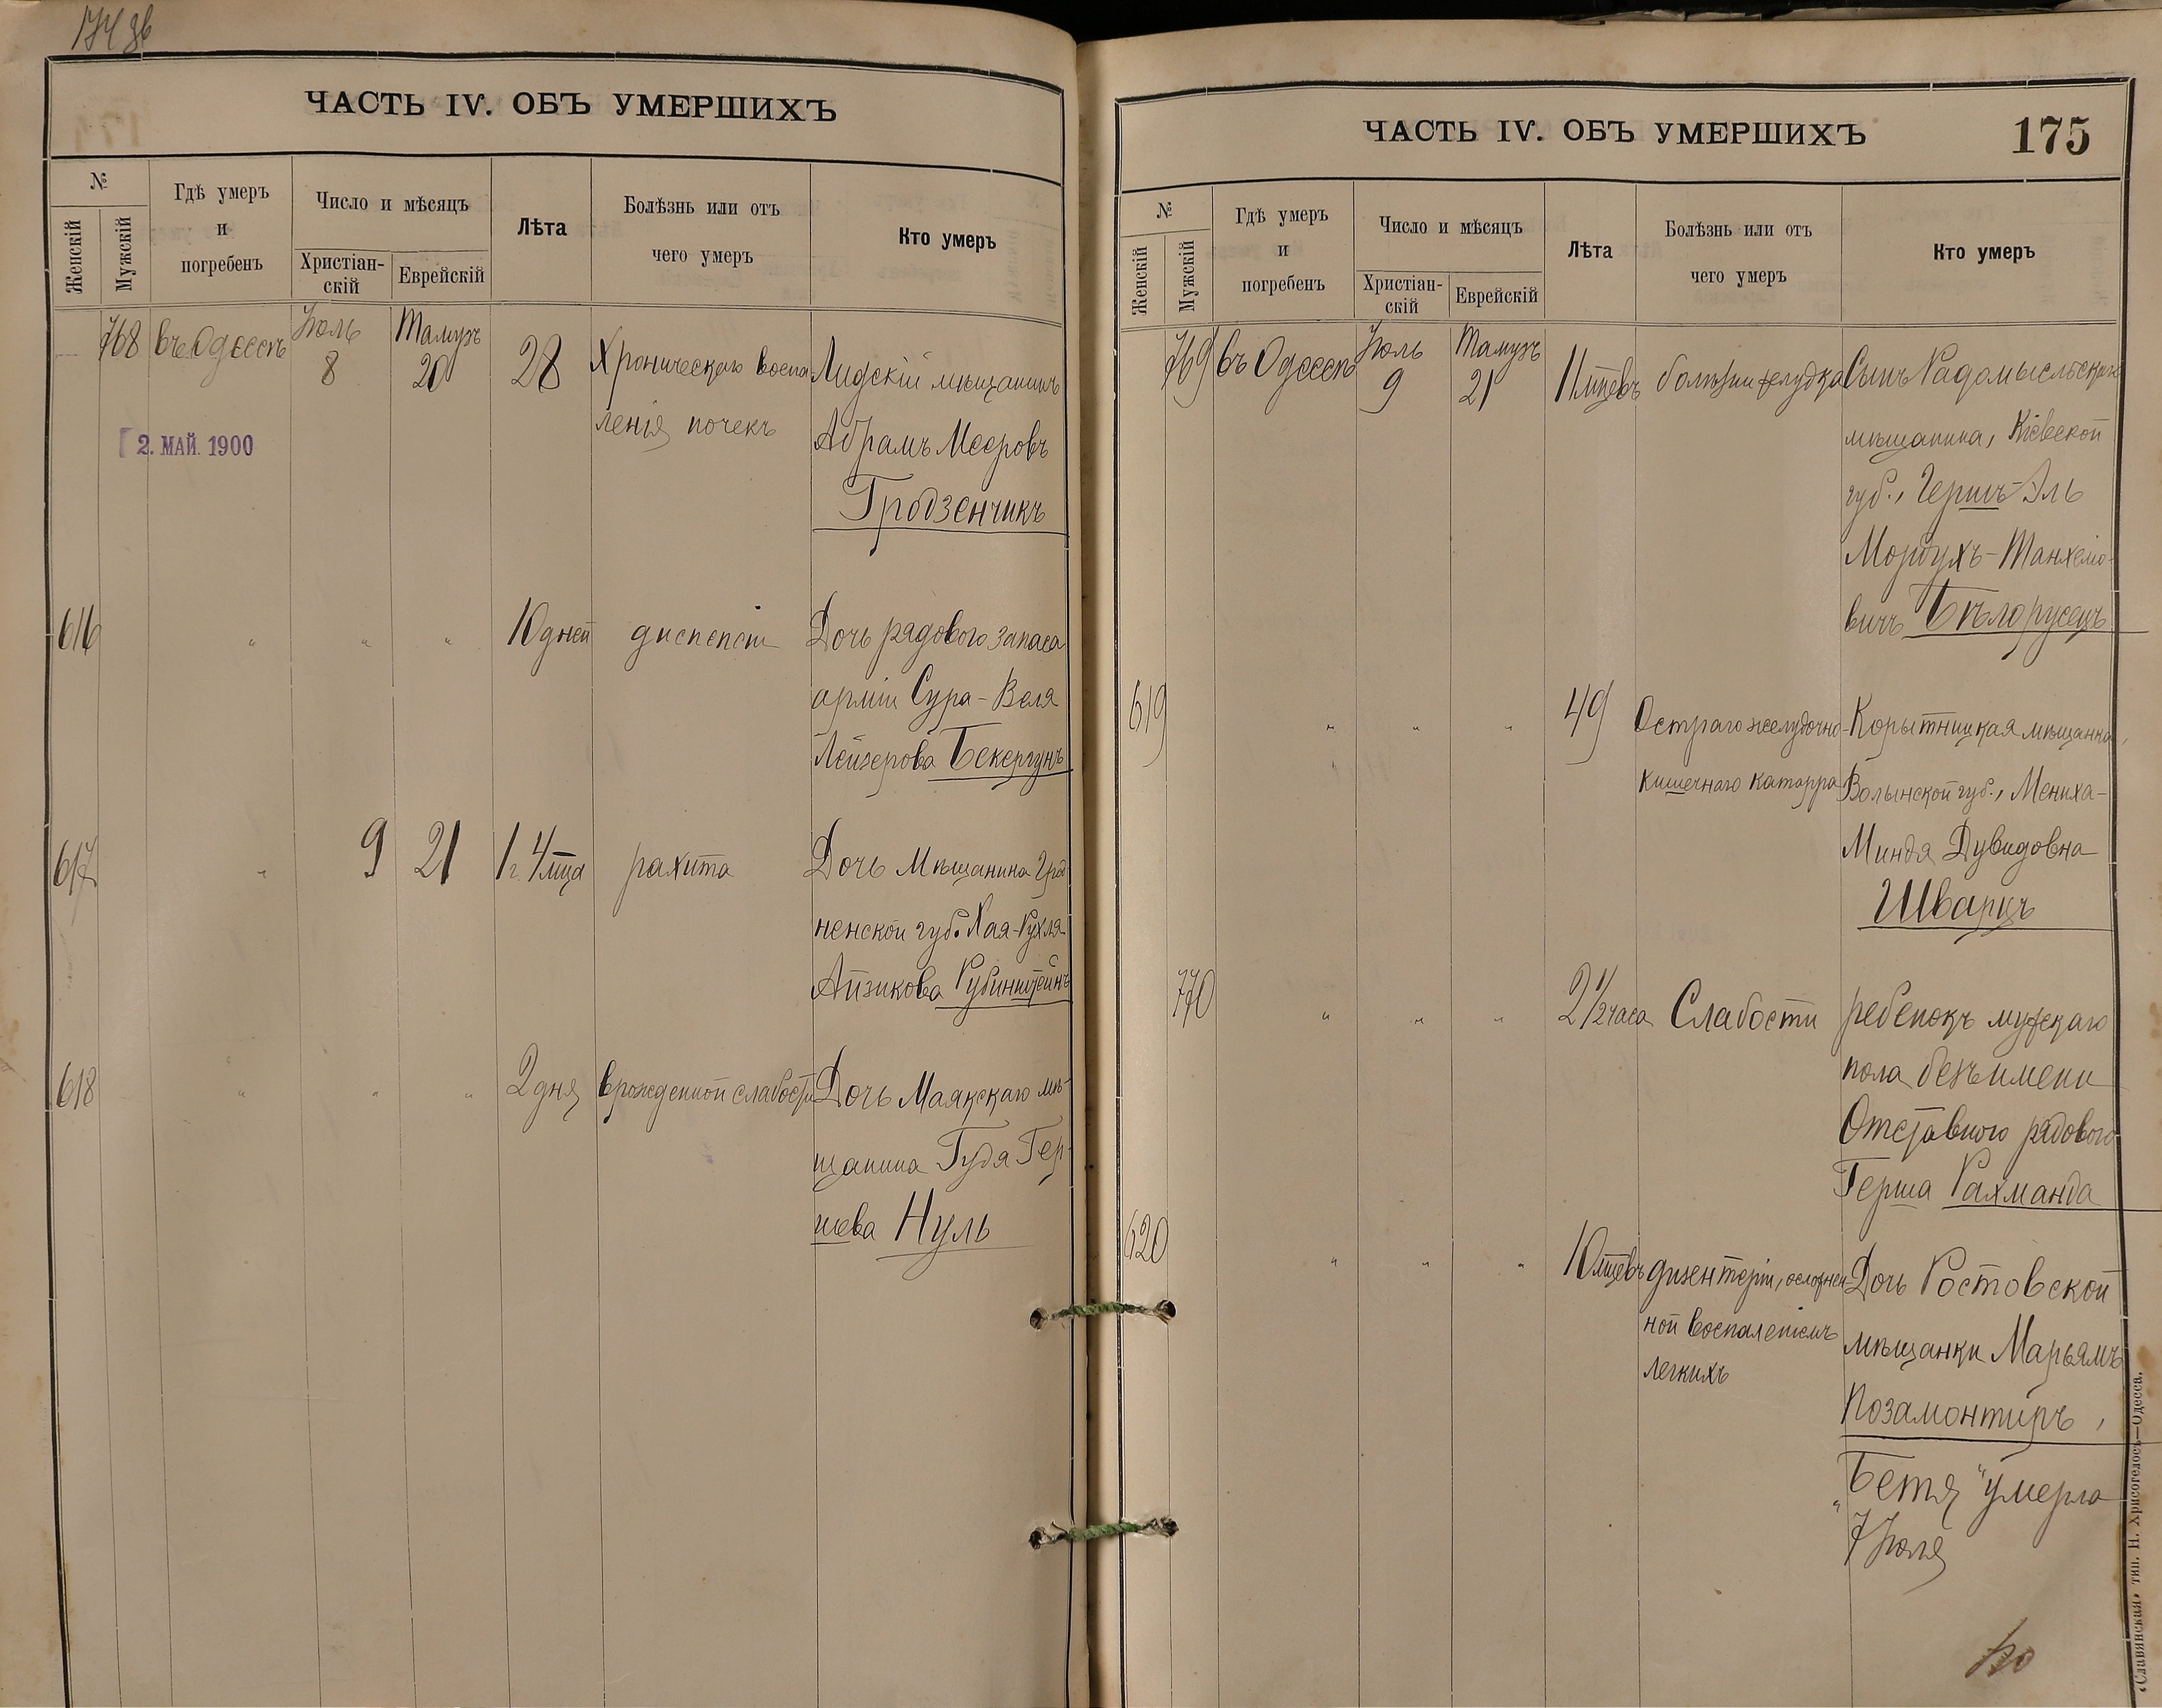 ЧАСТЬ IV. ОБЪ УМЕРШИХЪ
№
Женскій
Мужскій
Гдѣ умеръ
и
погребенъ
Число и мѣсяцъ
Христіан-
скій
Еврейскій
Лѣта
Болѣзнь или отъ
чего умеръ
Кто умеръ
768 въ Одессѣ Іюль 8 Тамузъ 20 28 Хроническаго воспа Лидскій мѣщанинъ
ленія почекъ Абрамъ Мееровъ
Гродзенчикъ
2. МАЙ. 1900
616 " " " 10 дней диспепсіи Дочь рядового запаса
арміи Сура-Веля
Лейзерова Бекергунъ
617 " 9 21 1 г. 4 мца рахита Дочь Мѣщанина Грод
ненской губ. Хая-Рухля
Айзикова Рубинштейнъ
618 " " " 2 дня врожденной слабости Дочь Маякскаго мѣ-
щанина Гудя Гер-
шева Нуль
ЧАСТЬ IV. ОБЪ УМЕРШИХЪ
175
№
Женскій
Мужскій
Гдѣ умеръ
и
погребенъ
Число и мѣсяцъ
Христіан-
скій
Еврейскій
Лѣта
Болѣзнь или отъ
чего умеръ
Кто умеръ
769 въ Одессѣ Іюль 9 Тамузъ 21 11 мцевъ болѣзни желудка Сынъ Радомысльскаго
мѣщанина, Кіевской
губ., Гершъ-Эль
Мордухъ-Танхелю-
вичъ Бѣлорусецъ
619 " " " 49 Остраго желудочно- Корытницкая мѣщанка,
кишечнаго катарра Волынской губ., Мениха-
Миндя Дувидовна
Шварцъ
770 " " " 2 1/2 часа Слабости ребенокъ мужскаго
пола безъ имени
Отставного рядового
Герша Рахманда
620 " " " 10 мцевъ дизентеріи, осложнен- Дочь Ростовской
ной воспаленіемъ мѣщанки Марьямъ
легкихъ Позамонтиръ,
"Бетя" умерла
7 Іюля
«Славянская» тип. Н. Хрисогелосъ—Одесса.